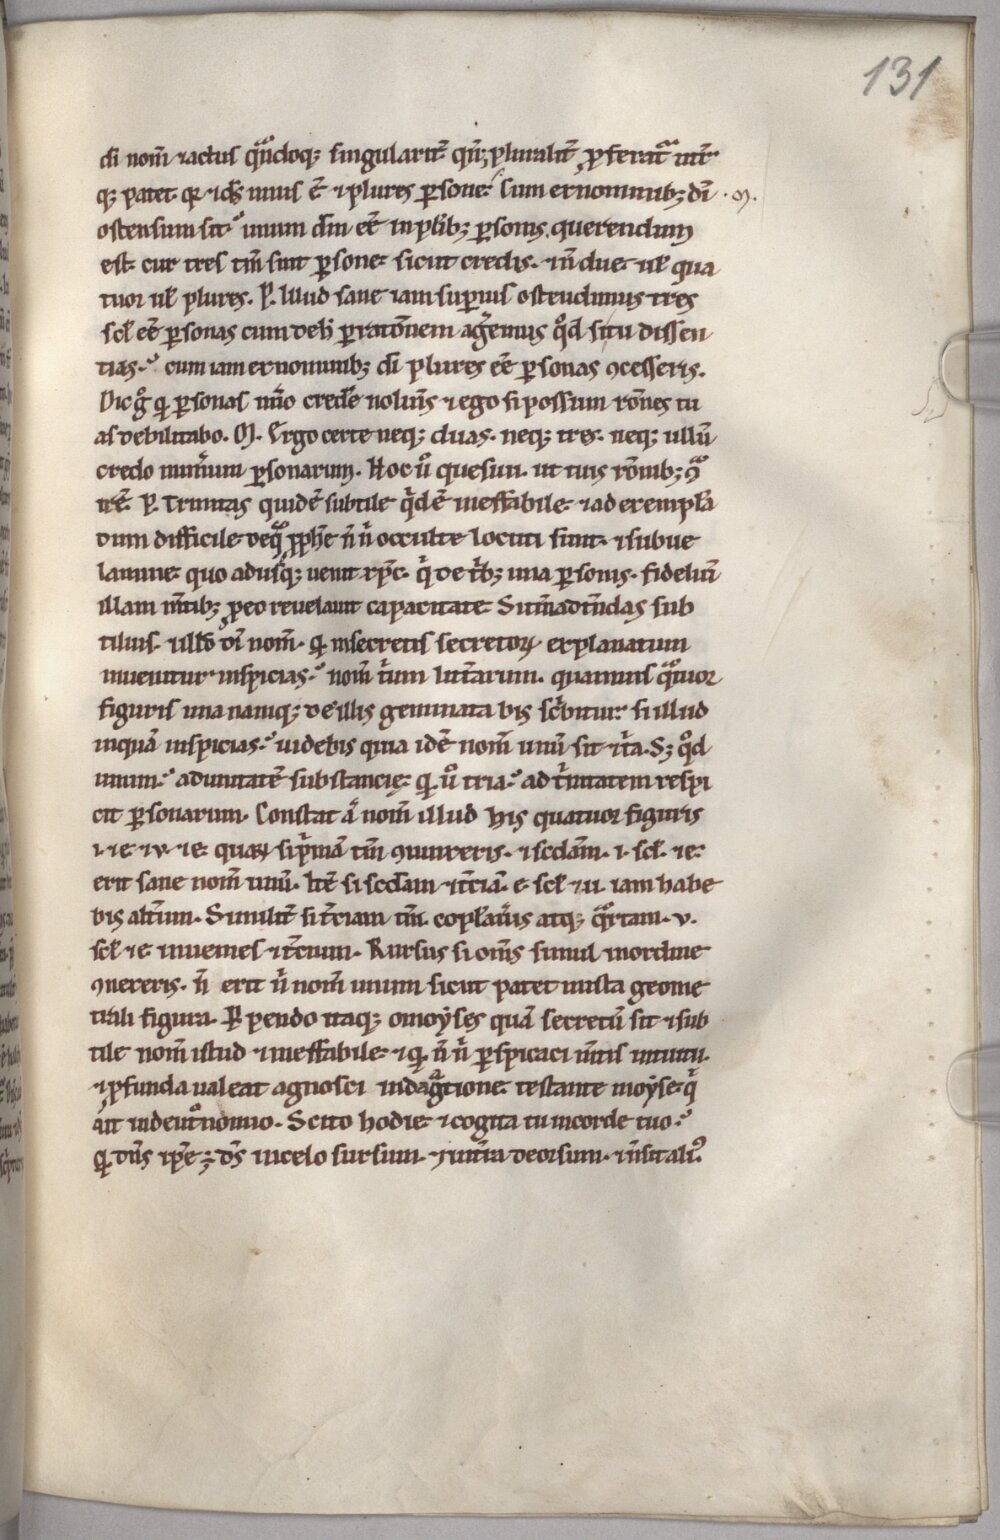 131
di nom̄ ⁊ actus qn̄doq; singularit̄ qn̄q; pluralit̄ ꝓferat̄ ut̄r
q; patet. q ⁊ ds̄ unus ē ⁊ plures ꝑsone. Cum ex nominib; dī .M.
ostensum sit unum dm̄ eē in plib; ꝑsonis. querendum
est. cur tres tm̄ sint ꝑsone. sicut credis. ⁊ n̄ due. ul̄ qua
tuor ul̄ plures. P. Illud sane iam suꝑius ostendimus tres
scł eē ꝑsonas cum de ꝑ ratōnem aḡemus qd̄ si tu dissen
tias. cum iam ex nominib; di plures eē ꝑsonas ꝯcesseris.
Dic g̊ q ꝑsonas nūo credēe nolueīs ⁊ ego si possum rōnes tu
as debilitabo. M. Ergo certe neq; duas. neq; tres. neq; ullū
credo num̄um ꝑsonarum. Hoc ū quesiui. ut tuis rōnib; 
P. Trinitas quidē subtile qd̄ ē ineffabile. ⁊ ad exempla
dum difficile de qa ꝓphe n̄ n̄ occulte locuti sunt. ⁊ sub ue
lamine. quo adusq; uenit xp̄c. q de t̄b; una ꝑsonis. fideliū
illam m̄tib; ꝓ eo reuelauit capacitate. Si tm̄ ad tn̄das sub
tilius. ⁊ illd̄ dī nom̄. q in secretis secretoꝝ explanatum
inuenitur inspicias. nom̄ t̄um litt̄arum. quamuis qtuor
figuris una namq; de illis geminata bis sc̄bitur. si illud
inquā inspicias. uidebis quia idē nom̄ unū sit ⁊ t̄a. S; qd̄
unum. ad unitatē substancie. q ū tria. ad t̄nitatem respi
cit ꝑsonarum. Constat ā nom̄ illud his quatuor figuris
i. ⁊ e ⁊ v. ⁊ e. quaꝝ si p̄mā tm̄ ꝯiunxeris. ⁊ scdām. i. scł. ⁊ e.
erit sane nom̄ unū. Itē si scdam ⁊ t̄ciā. e. scł ⁊ u. iam habe
bis alt̄um. Similit̄ si t̄ciam tm̄. copłaūis atq; q̄rtam. v.
scł ⁊ e inuenies ⁊ t̄cium. Rursus si om̄s simul in ordine
ꝯnexeris. n̄ erit n̄ nom̄ unum sicut patet in ista geome
triali figura. P. Perpendo itaq; o moyses quā secretū sit ⁊ sub
tile nom̄ istud ⁊ ineffabile. ⁊ q n̄ n̄ ꝑspicaci m̄tis intuitu.
⁊ ꝓfunda ualeat agnosci indagatione. testante moyse. q
ait in deut̄onomio. Scito hodie. ⁊ cogita tu in corde tuo.
q dn̄s ip̄e ē ds̄ in celo sursum. ⁊ in t̄ra deorsum. ⁊ n̄ sit alius